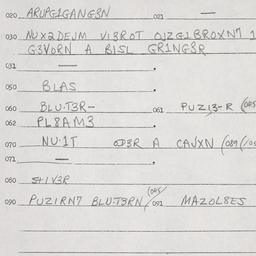 020 ARUPG1GANG3N 021 —
030 NUX2DEJM VI3ROT OJZG1BROXN7 1
G3VORN A BISL GR1NG3R
031 — .
050 BLAS .
060 BLU·T3R— 061 PUZ13-R (085
062 PL8AM3 .
070 NU·1T OD3R A CAJXN (089 (/05
071 — .
080 S+1V3R
090 PUZ1RN7 BLU·T3RN, (085/ 091 MAZOL8ES